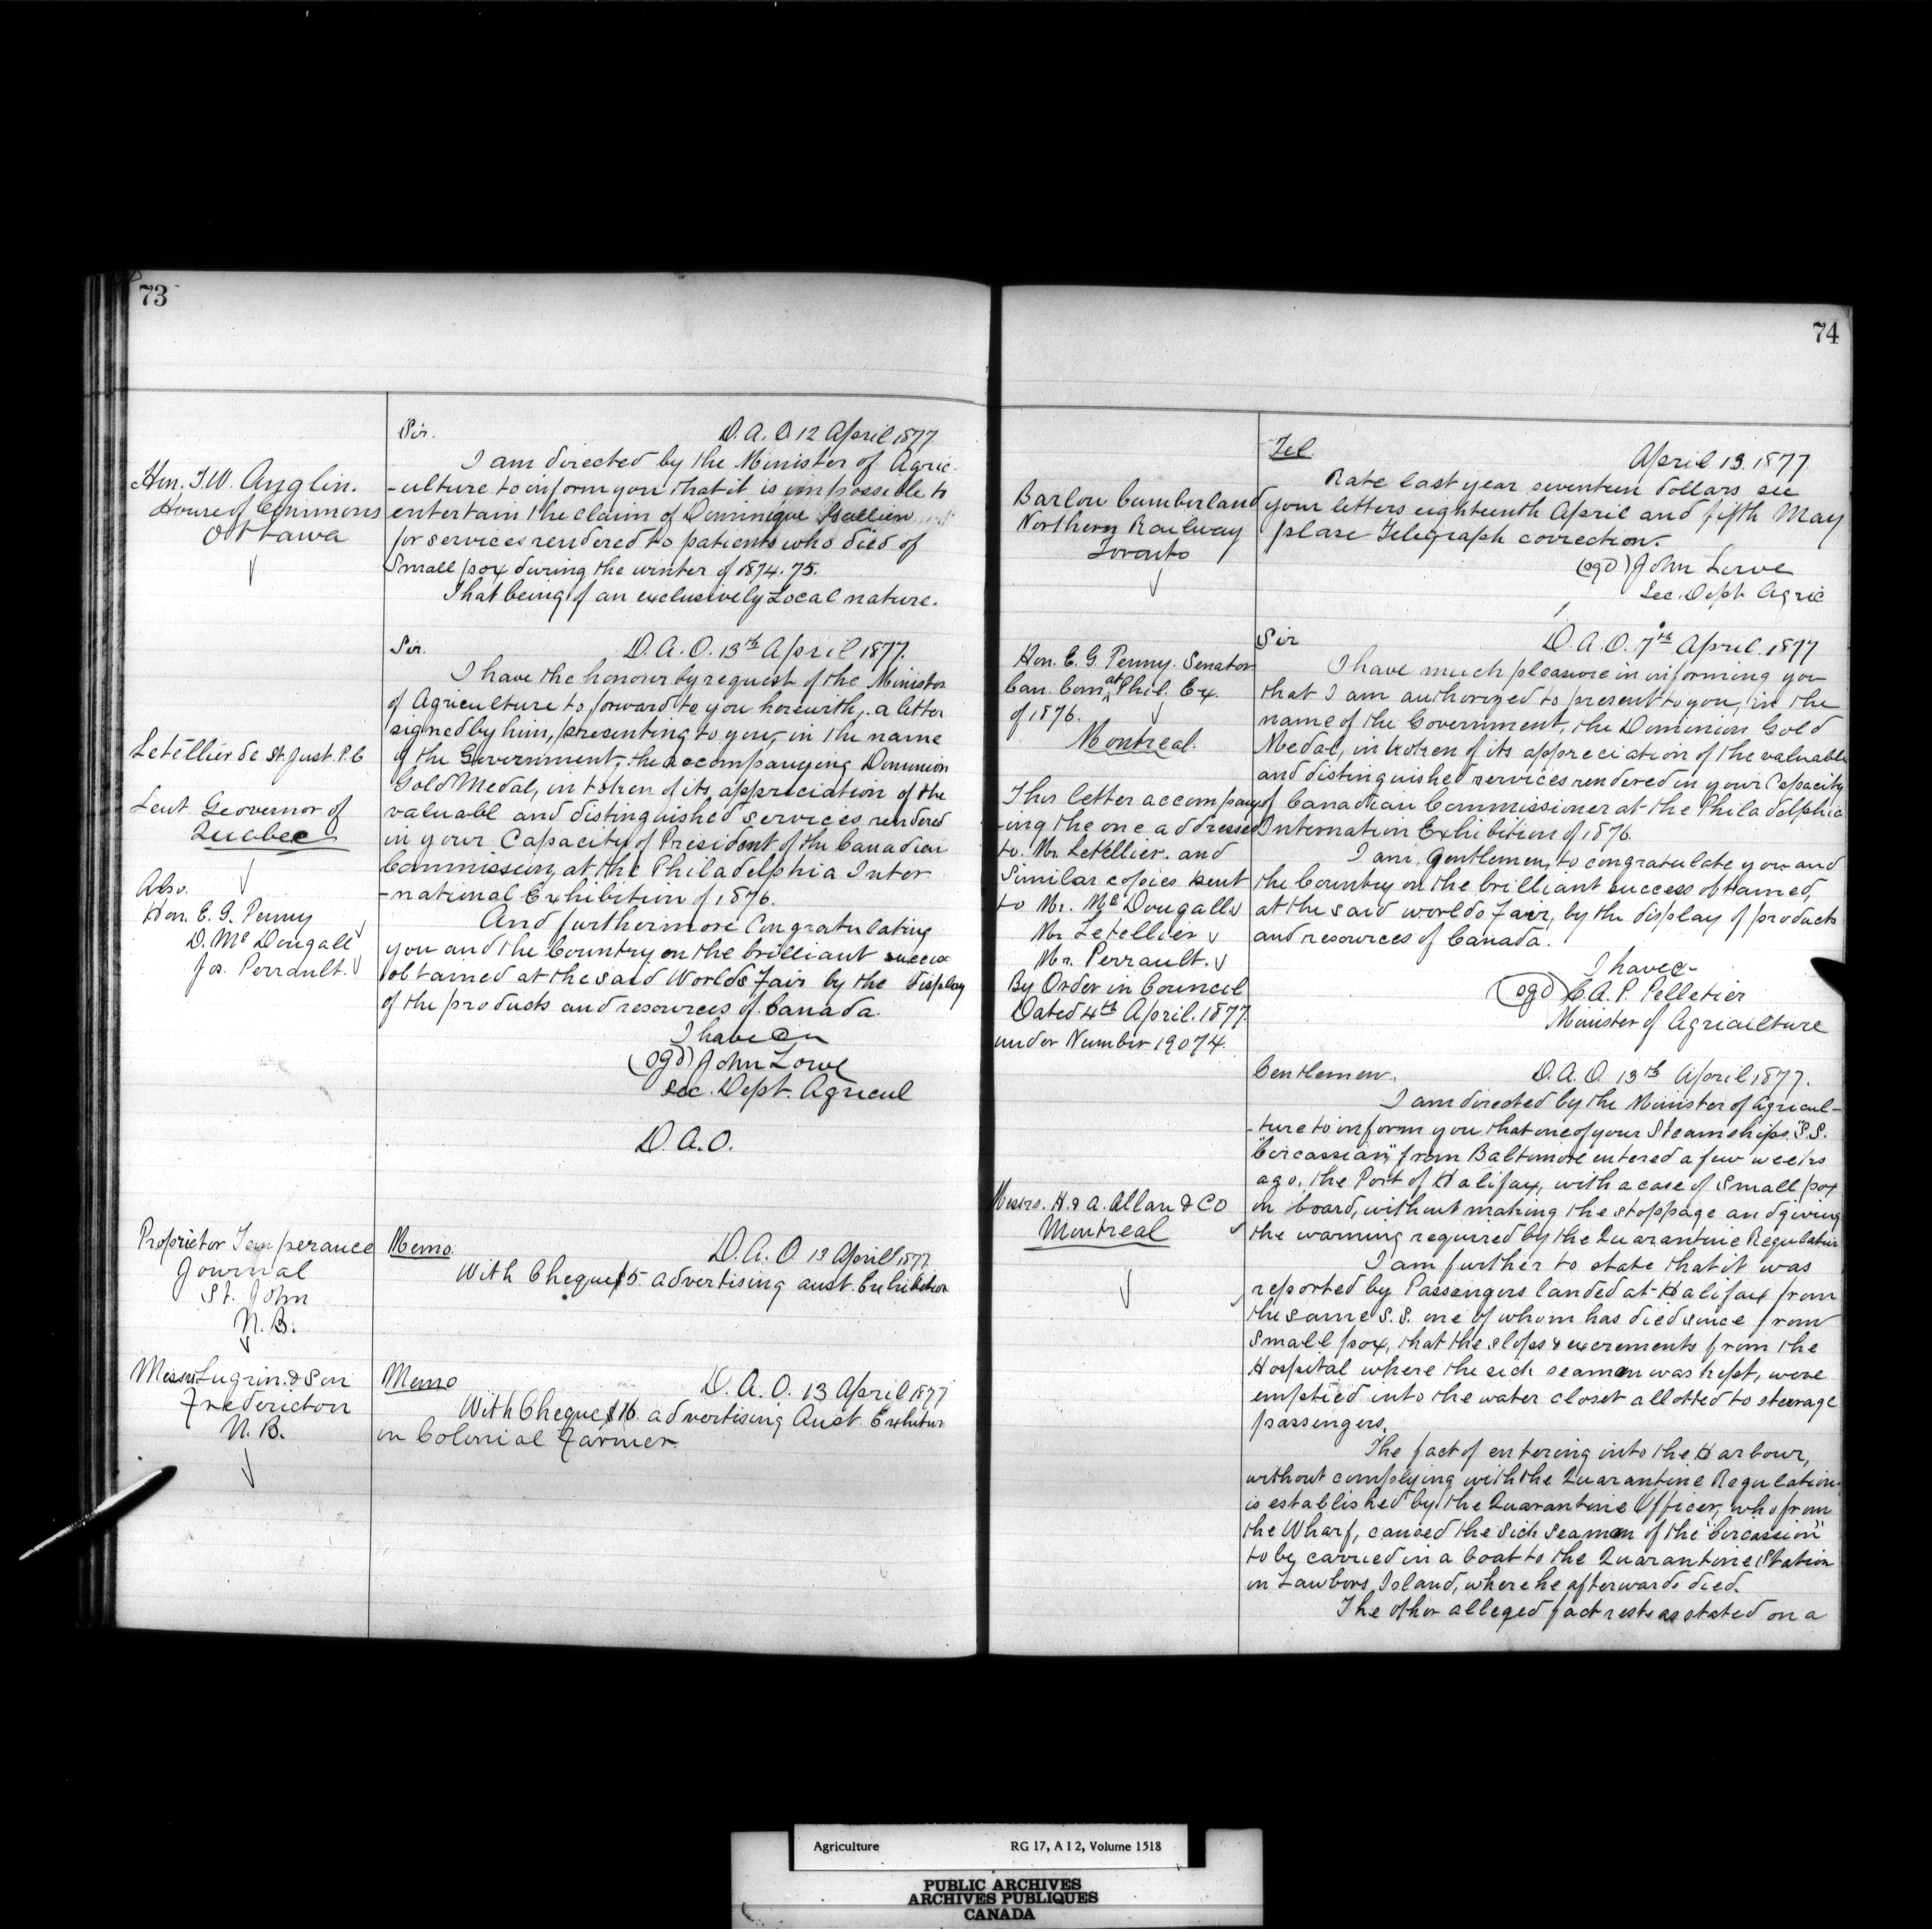 73
Sir. D. A. O 12 April 1877
Hon. T. W. Anglin.
House of Commons
Ottawa
I am directed by the Minister of Agric-
-ulture to inform you that it is impossible to
entertain the claim of Dominique
for services rendered to patients who died of
Small pox during the winter of 1874.75.
That being of an exclusively Local nature.
Letellier de St. Just. P.C
Leut Geovernor of
Quebec
Also.
Hon. E. G. Penny
D. Mc Dougall
Jos. Perrault.
Sir. D. A. O. 13th April 1877.
I have the honour by request of the Minister
of Agriculture to forward to you herewith, a letter
signed by him, presenting to you, in the name
of the Government, the accompanying Dominion
Gold Medal, in token of its appreciation of the
valuabl and distinguished services rendered
in your Capacity of President of the Canadian
Commission, at the Philadelphia Inter
-national Exhibition of 1876.
And furthermore Congratulating
you and the Country on the brilliant success
obtained at the said Worlds Fair by the display
of the products and resources of Canada.
I have &c
(sgd) John Lowe
Sec. Dept. Agricul
D. A. O.
Proprietor Temperance
Journal
St. John
N. B.
Memo. D. A. O 13 Aprill 1877
With Cheque $5 advertising aust. Exhibition
Messrs Lugrin & Son
Fredericton
N. B.
Memo D. A. O. 13 April 1877
With Cheque $16. advertising Aust. Exhibition
in Colonial Farmer.
74
Barlow Cumberland
Northern Railway
Toronto
Tel. April 13. 1877
Rate last year seventeen dollars see
your letters eighteenth April and fifth May
plase Telegraph correction.
(sgd) John Lowe
Sec. Dept Agric
Hon. E. G. Penny. Senator
Can. Com. at Phil. Ex.
of 1876.
Montreal.
This letter accompany
-ing the one addressed
to. Mr. Letellier. and
Similar copies sent
to Mr. Mc Dougall
Mr Letellier
Mr. Perrault.
By Order in Council
Dated 4th April. 1877.
under Number 19074.
Sir D. A. O. 7th April. 1877
I have much pleasure in informing you
that I am authorized to present to you, in the
name of the Government, the Dominion Gold
Medal, in token of its appreciation of the valuable
and distinguished services rendered in your Capacity
of Canadian Commissioner at the Philadelphia
Internation Exhibition of 1876.
I am, Gentlemen, to congratulate you and
the Country on the brilliant success obtained,
at the said worlds Fair, by the display of products
and resources of Canada.
I have &
(sgd) C. A. P. Pelletier
Minister of Agriculture
Messrs. H. & A. Allan & Co
Montreal
Gentlemen. D. A. O. 13th April 1877.
I am directed by the Minister of Agricul-
-ture to inform you that one of your Steamships. "S.S.
Circassian" from Baltimore entered a few weeks
ago, the Port of Halifax, with a case of Small pox
on board, without making the stoppage and giving
the warning required by the Quarantine Regulation
I am further to state that it was
reported by Passengers landed at Halifax from
the same S. S. one of whom has died since from
Small pox, that the slops & excrements from the
Hospital where the sick seaman was kept, were
emptied into the water closet allotted to steerage
passengers.
The fact of entering into the Harbour,
without complying with the Quarantine Regulation
is established by the Quarantine Officer, who from
the Wharf, caused the sick seaman of the "Circassian"
to be carried in a boat to the Quarantine Station
on Lawlors Island, where he afterwards died.
The other alleged fact rests as stated on a
Agriculture RG 17, A I 2, Volume 1518
PUBLIC ARCHIVES
ARCHIVES PUBLIQUES
CANADA